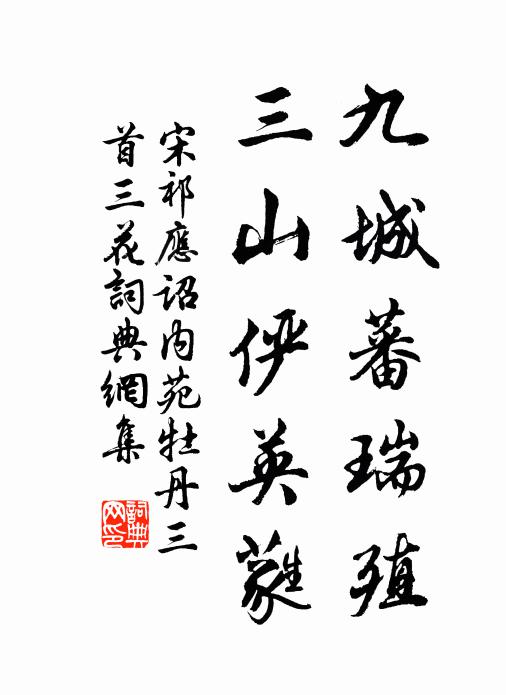 九城蕃瑞殖
三山儼英蕤
宋祁應詔內苑牡丹三
首三花詞典網集
詞典网印